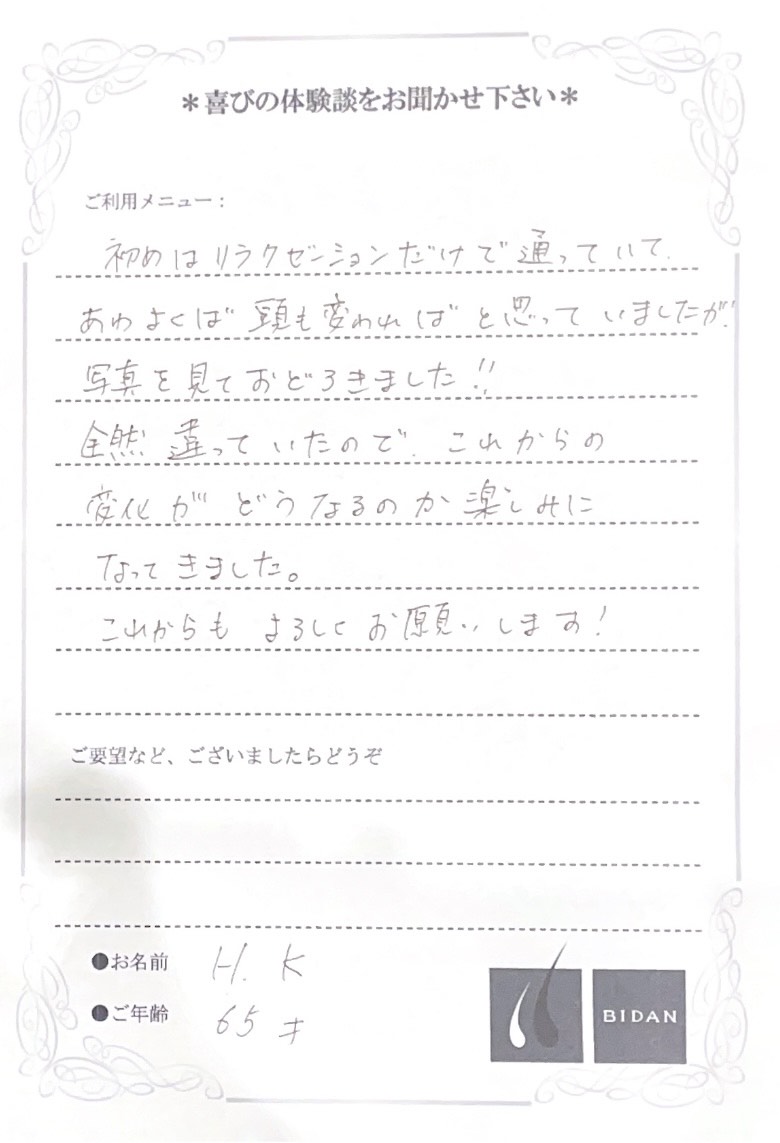 ＊喜びの体験談をお聞かせ下さい＊
ご利用メニュー：
初めはリラクゼーションだけで通っていて、
あわよくば頭も変わればと思っていましたが、
写真を見ておどろきました!!
全然違っていたので、これからの
変化がどうなるのか楽しみに
なってきました。
これからもよろしくお願いします!
ご要望など、ございましたらどうぞ
●お名前 H. K
●ご年齢 65才
BIDAN